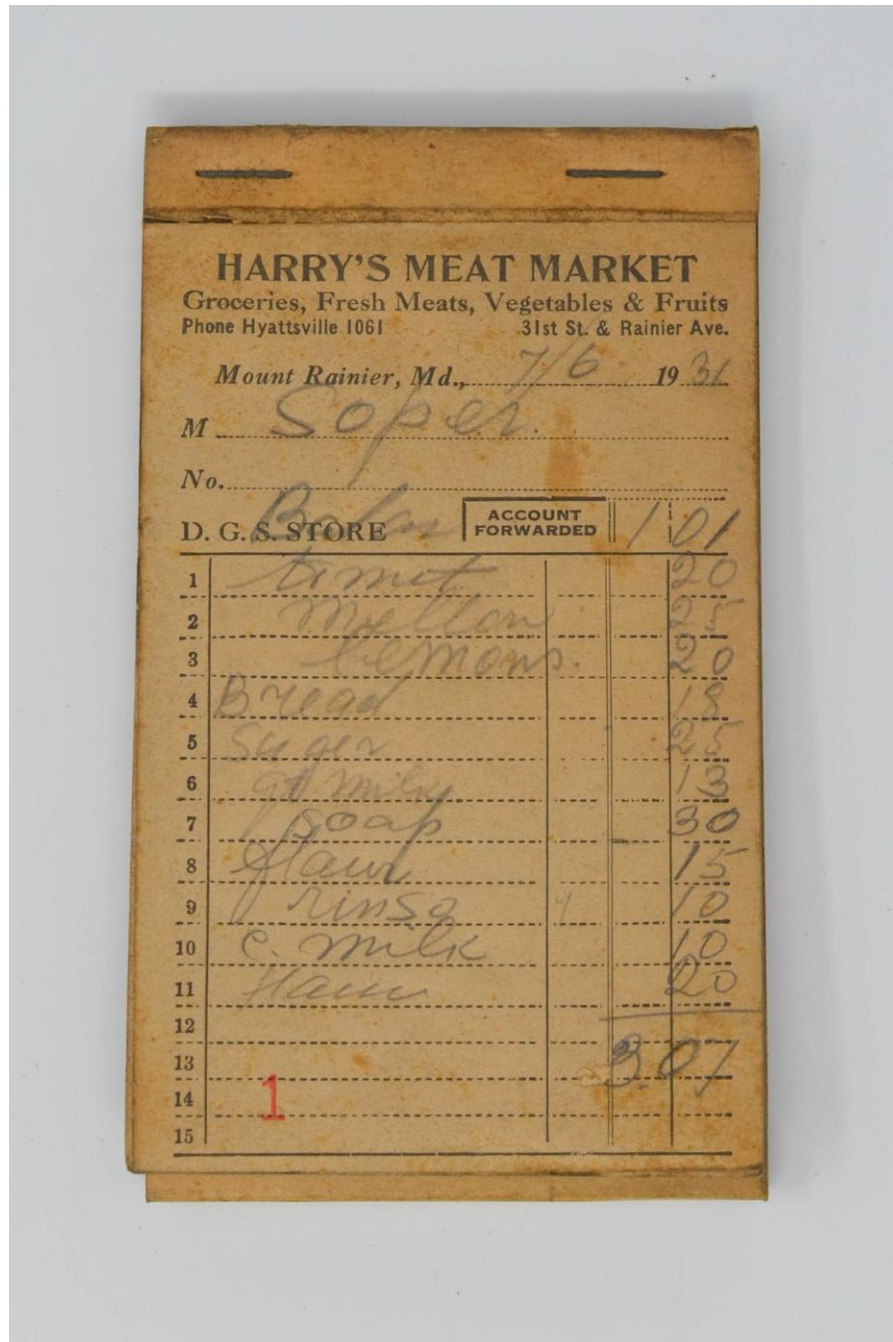 HARRY'S MEAT MARKET
Groceries, Fresh Meats, Vegetables & Fruits
Phone Hyattsville 1061 31st St. & Rainier Ave.
Mount Rainier, Md., 7/6 1931
M Soper.
No.
D. G. S. STORE ACCOUNT FORWARDED 1 01
1 20
2 Mellon 25
3 lemons. 20
4 Bread 18
5 Suger 25
6 qt milk 13
7 Soap 30
8 flaur 15
9 rinso 10
10 C. milk 10
11 Ham 20
12
13 3.07
14 1
15